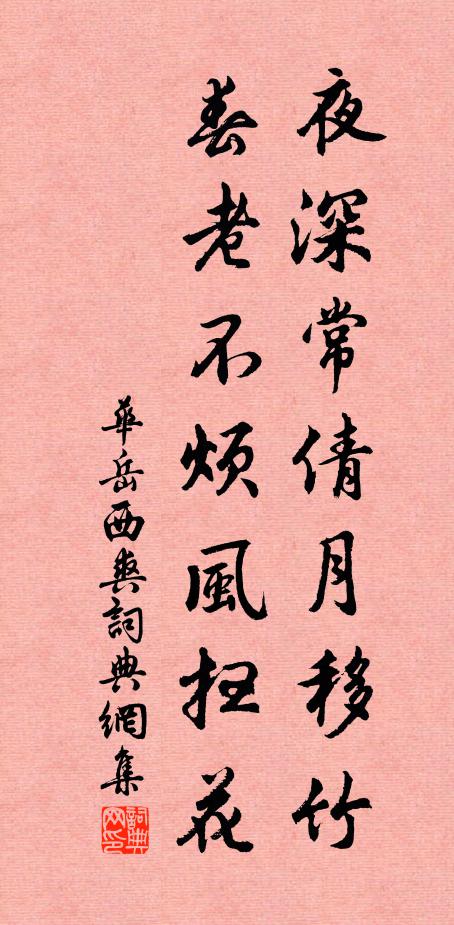 夜深常倩月移竹
春老不煩風扫花
華岳西爽詞典網集
詞典
网印